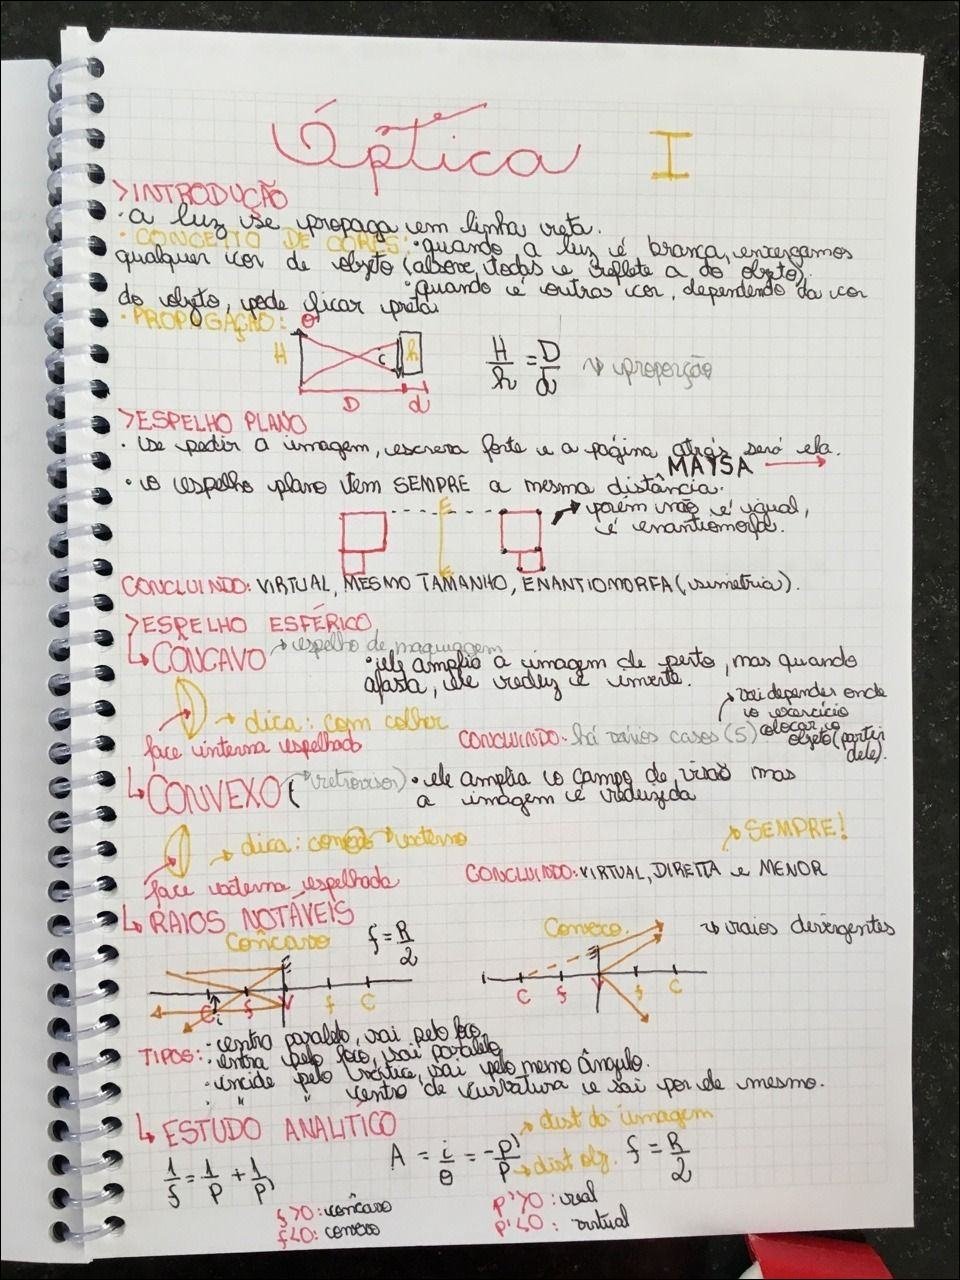 Óptica I
>INTRODUÇÃO
· a luz se propaga em linha reta.
· CONCEITO DE CORES: · quando a luz é branca, enxergamos
qualquer cor de objeto (absorve todas e reflete a do objeto).
· quando é outras cor, dependendo da cor
do objeto, pode ficar preta
· PROPAGAÇÃO:
H o i h
D d
H/h = D/d → proporção
>ESPELHO PLANO
· se pedir a imagem, escreva forte e a página atrás será ela.
MAYSA →
· o espelho plano tem SEMPRE a mesma distância.
E → porém não é igual,
é enantiomorfa.
CONCLUINDO: VIRTUAL, MESMO TAMANHO, ENANTIOMORFA (simetria).
>ESPELHO ESFÉRICO
↳ CÔNCAVO → espelho de maquiagem
· ele amplia a imagem de perto, mas quando
afasta, ele reduz e inverte.
→ dica: com colher
face interna espelhada
CONCLUINDO: há vários casos (5)
→ vai depender onde
o exercício
colocar o
objeto (partir
dele).
↳ CONVEXO (retrovisor) · ele amplia o campo de visão mas
a imagem é reduzida
→ dica: → externo
face externa espelhada
→ SEMPRE!
CONCLUINDO: VIRTUAL, DIREITA e MENOR
↳ RAIOS NOTÁVEIS
Côncavo f = R/2
C f V f C
i
Convexo → raios divergentes
C f V f C
TIPOS: · centro paralelo, sai pelo foco
· entra pelo foco, sai paralelo
· incide pelo vértice, sai pelo memo ângulo.
· " " centro de curvatura e sai por ele mesmo.
↳ ESTUDO ANALÍTICO
1/f = 1/p + 1/p'
A = i/o = -p'/p
→ dist da imagem
→ dist obj.
f = R/2
f>0: côncavo
f<0: convexo
p'>0: real
p'<0: virtual